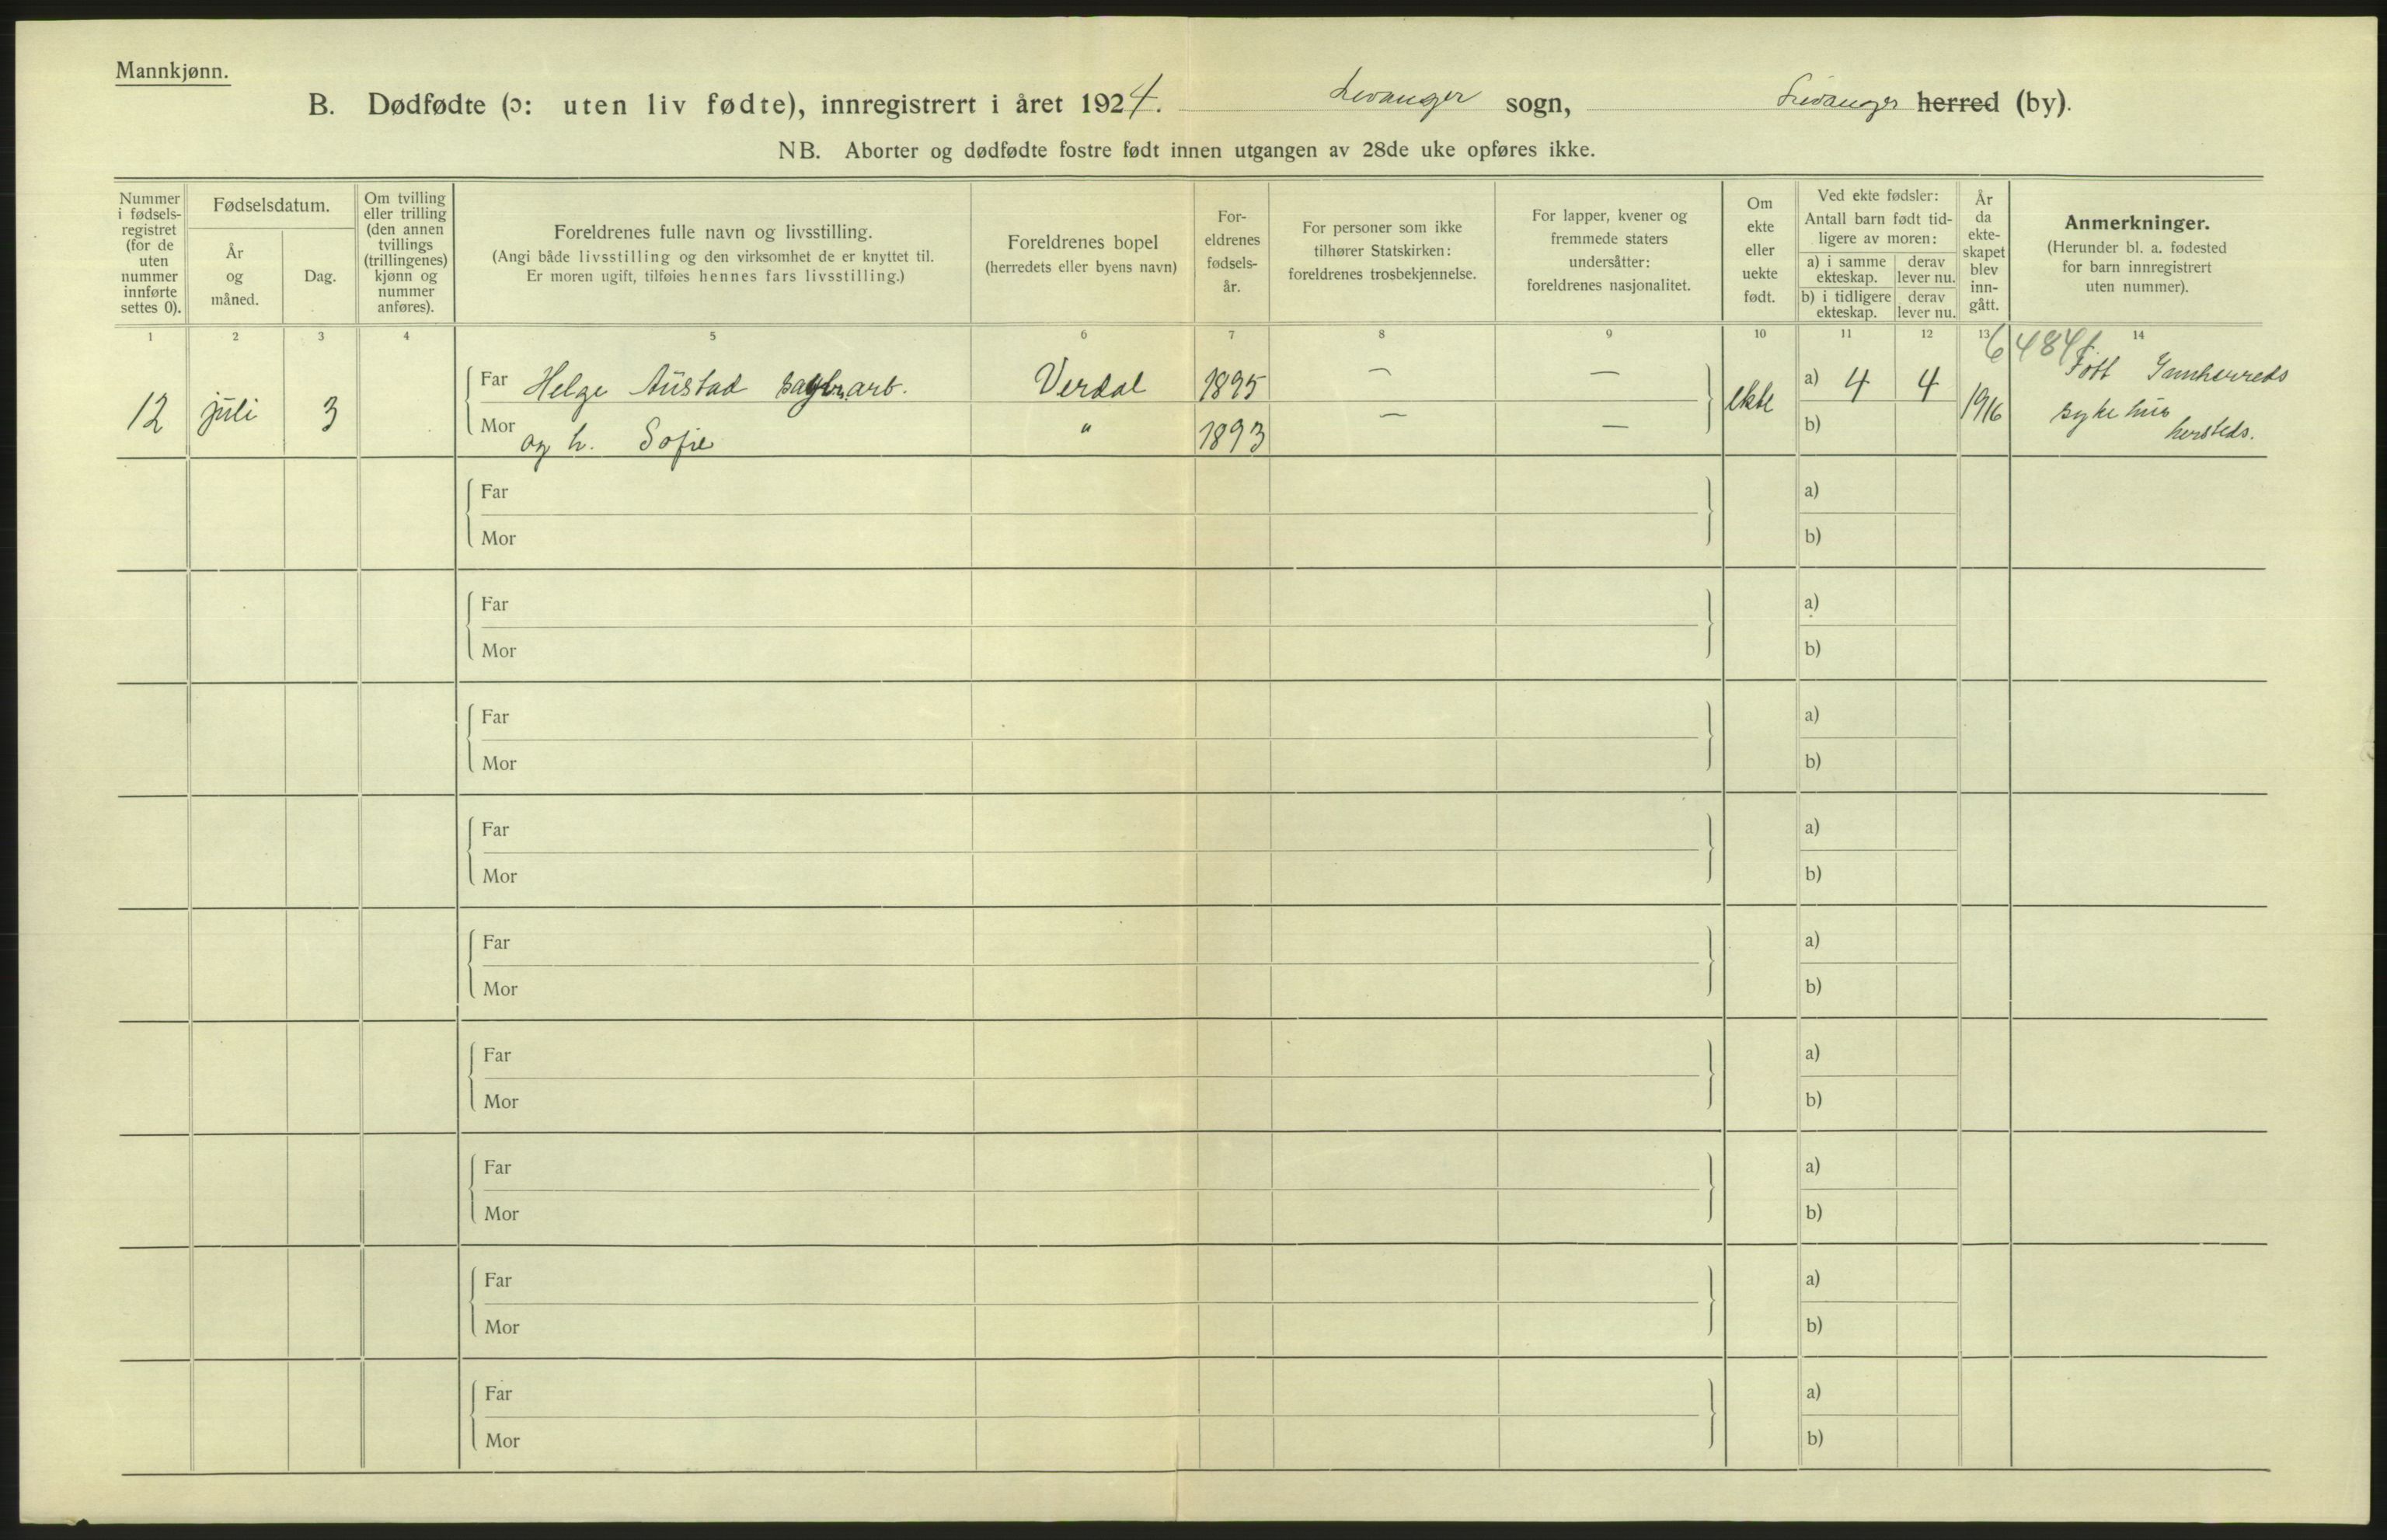 Mannkjønn.
B. Dødfødte (ɔ: uten liv fødte), innregistrert i året 1924. Levanger sogn, Levanger herred (by).
NB. Aborter og dødfødte fostre født innen utgangen av 28de uke opføres ikke.
Nummer i fødsels-registret (for de uten nummer innførte settes 0).
Fødselsdatum.
År og måned.
Dag.
Om tvilling eller trilling (den annen tvillings (trillingenes) kjønn og nummer anføres).
Foreldrenes fulle navn og livsstilling.
(Angi både livsstilling og den virksomhet de er knyttet til.
Er moren ugift, tilføies hennes fars livsstilling.)
Foreldrenes bopel
(herredets eller byens navn)
For-eldrenes fødsels-år.
For personer som ikke tilhører Statskirken: foreldrenes trosbekjennelse.
For lapper, kvener og fremmede staters undersåtter: foreldrenes nasjonalitet.
Om ekte eller uekte født.
Ved ekte fødsler:
Antall barn født tid-ligere av moren:
a) i samme ekteskap.
derav lever nu.
b) i tidligere ekteskap.
derav lever nu.
År da ekte-skapet blev inn-gått.
Anmerkninger.
(Herunder bl. a. fødested for barn innregistrert uten nummer).
1 2 3 4 5 6 7 8 9 10 11 12 13 14
6484
12 juli 3
Far Helge Austad arb. Verdal 1895 — —
Mor og h. Sofie " 1893 — —
ekte
a) 4 4
b)
1916
Født Innherreds
sykehus
hersteds.
Far
Mor
a)
b)
Far
Mor
a)
b)
Far
Mor
a)
b)
Far
Mor
a)
b)
Far
Mor
a)
b)
Far
Mor
a)
b)
Far
Mor
a)
b)
Far
Mor
a)
b)
Far
Mor
a)
b)